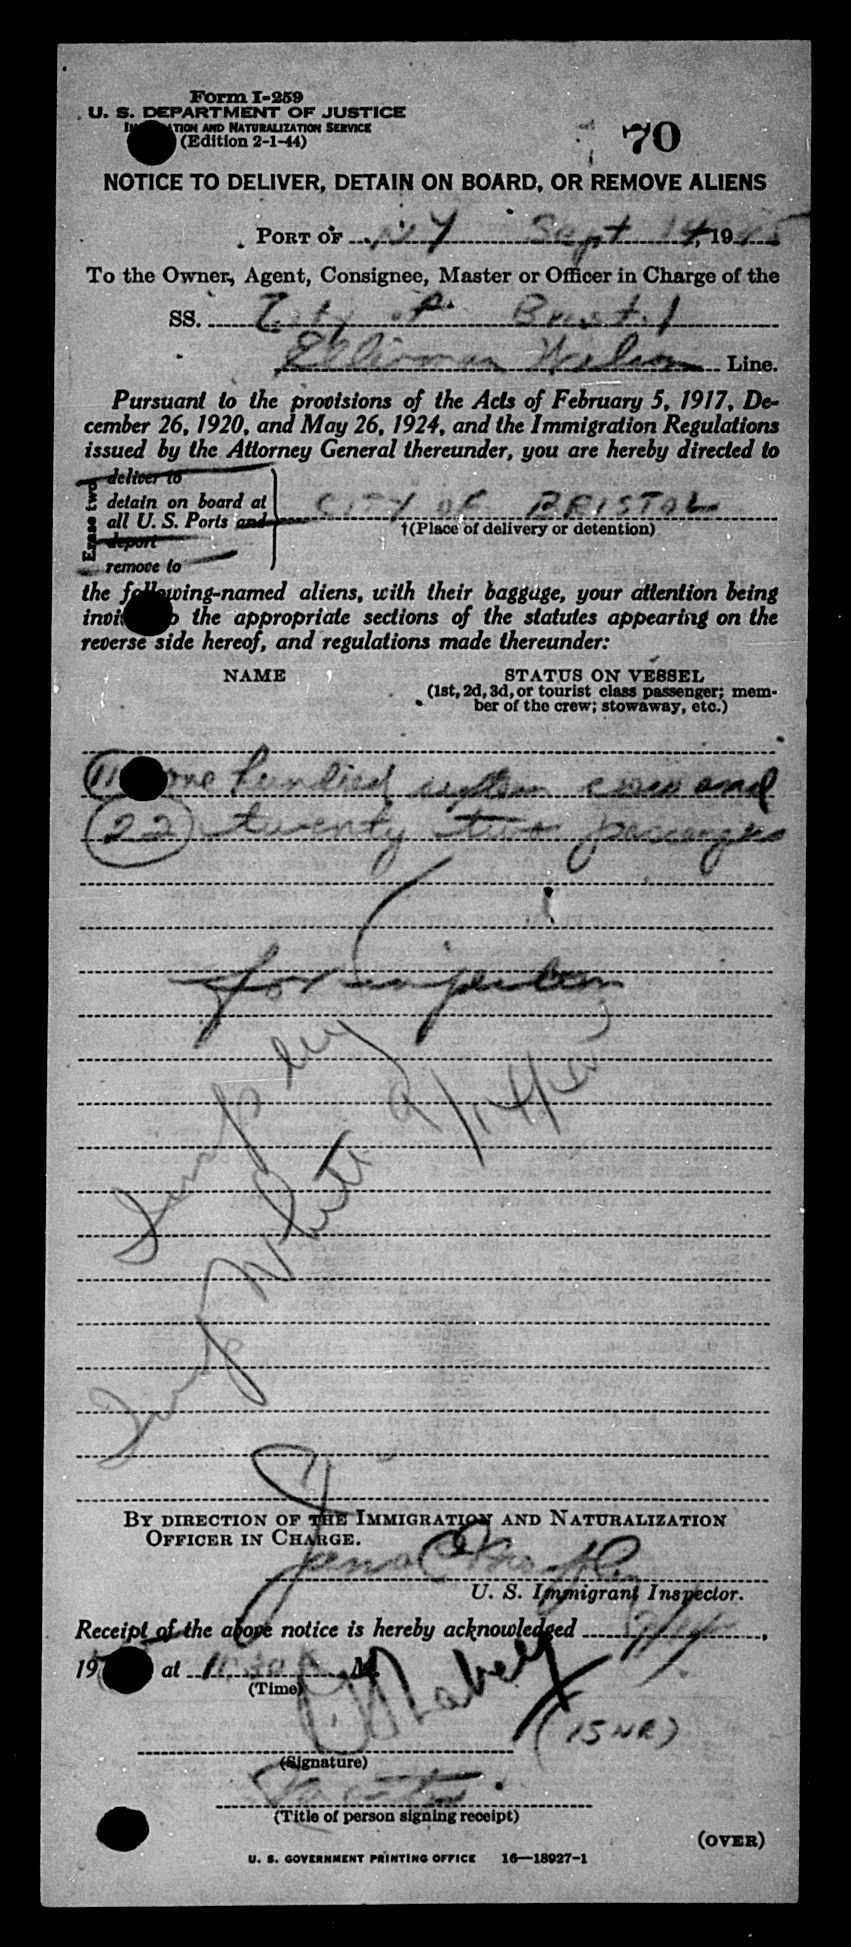 Form I-259
U. S. DEPARTMENT OF JUSTICE
IMMIGRATION AND NATURALIZATION SERVICE
(Edition 2-1-44)
70
NOTICE TO DELIVER, DETAIN ON BOARD, OR REMOVE ALIENS
PORT OF NY Sept 14, 1945
To the Owner, Agent, Consignee, Master or Officer in Charge of the
SS. City of Bristol
Ellerman Wilson Line.
Pursuant to the provisions of the Acts of February 5, 1917, De-
cember 26, 1920, and May 26, 1924, and the Immigration Regulations
issued by the Attorney General thereunder, you are hereby directed to
Erase two
deliver to
detain on board at
all U. S. Ports and
deport
remove to
CITY OF BRISTOL
†(Place of delivery or detention)
the following-named aliens, with their baggage, your attention being
invited to the appropriate sections of the statutes appearing on the
reverse side hereof, and regulations made thereunder:
NAME STATUS ON VESSEL
(1st, 2d, 3d, or tourist class passenger; mem-
ber of the crew; stowaway, etc.)
one hundred crew and
(22) twenty two passengers
for inspection
Insp
Insp White 9/14/45
BY DIRECTION OF THE IMMIGRATION AND NATURALIZATION
OFFICER IN CHARGE.
U. S. Immigrant Inspector.
Receipt of the above notice is hereby acknowledged 9/14,
19 at 11:30 A. M.
(Time)
(ISNR)
(Signature)
(Title of person signing receipt)
(OVER)
U. S. GOVERNMENT PRINTING OFFICE 16—18927-1